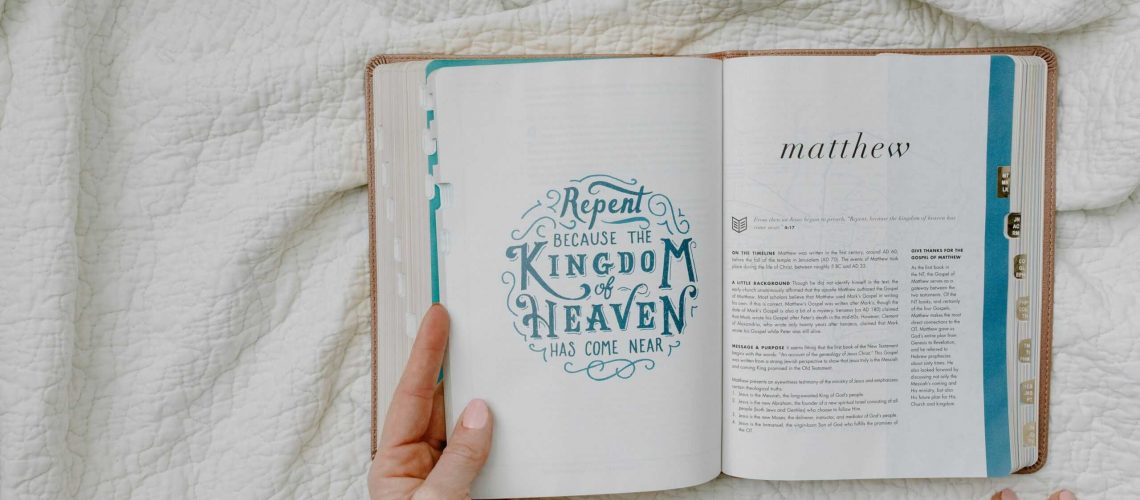 Repent
BECAUSE THE
KINGDOM
of
HEAVEN
HAS COME NEAR
matthew
From then on Jesus began to preach, "Repent, because the kingdom of heaven has
come near." 4:17
ON THE TIMELINE Matthew was written in the first century, around AD 60,
before the fall of the temple in Jerusalem (AD 70). The events of Matthew took
place during the life of Christ, between roughly 5 BC and AD 33.
A LITTLE BACKGROUND Though he did not identify himself in the text, the
early church unanimously affirmed that the apostle Matthew authored the Gospel
of Matthew. Most scholars believe that Matthew used Mark's Gospel in writing
his own. If this is correct, Matthew's Gospel was written after Mark's, though the
date of Mark's Gospel is also a bit of a mystery. Irenaeus (ca AD 180) claimed
that Mark wrote his Gospel after Peter's death in the mid-60s. However, Clement
of Alexandria, who wrote only twenty years after Irenaeus, claimed that Mark
wrote his Gospel while Peter was still alive.
MESSAGE & PURPOSE It seems fitting that the first book of the New Testament
begins with the words: "An account of the genealogy of Jesus Christ." This Gospel
was written from a strong Jewish perspective to show that Jesus truly is the Messiah
and coming King promised in the Old Testament.
Matthew presents an eyewitness testimony of the ministry of Jesus and emphasizes
certain theological truths:
1. Jesus is the Messiah, the long-awaited King of God's people.
2. Jesus is the new Abraham, the founder of a new spiritual Israel consisting of all
people (both Jews and Gentiles) who choose to follow Him.
3. Jesus is the new Moses, the deliverer, instructor, and mediator of God's people.
4. Jesus is the Immanuel, the virgin-born Son of God who fulfills the promises of
the OT.
GIVE THANKS FOR THE
GOSPEL OF MATTHEW
As the first book in
the NT, the Gospel of
Matthew serves as a
gateway between the
two testaments. Of the
NT books, and certainly
of the four Gospels,
Matthew makes the
most direct connections to the
OT. Matthew gave us
God's entire plan from
Genesis to Revelation,
and he referred to
Hebrew prophecies
about sixty times. He
also looked forward by
discussing not only the
Messiah's coming and
His ministry, but also
His future plan for His
Church and kingdom.
MT
MK
LK
JN
AC
RM
CO
GL
EPH